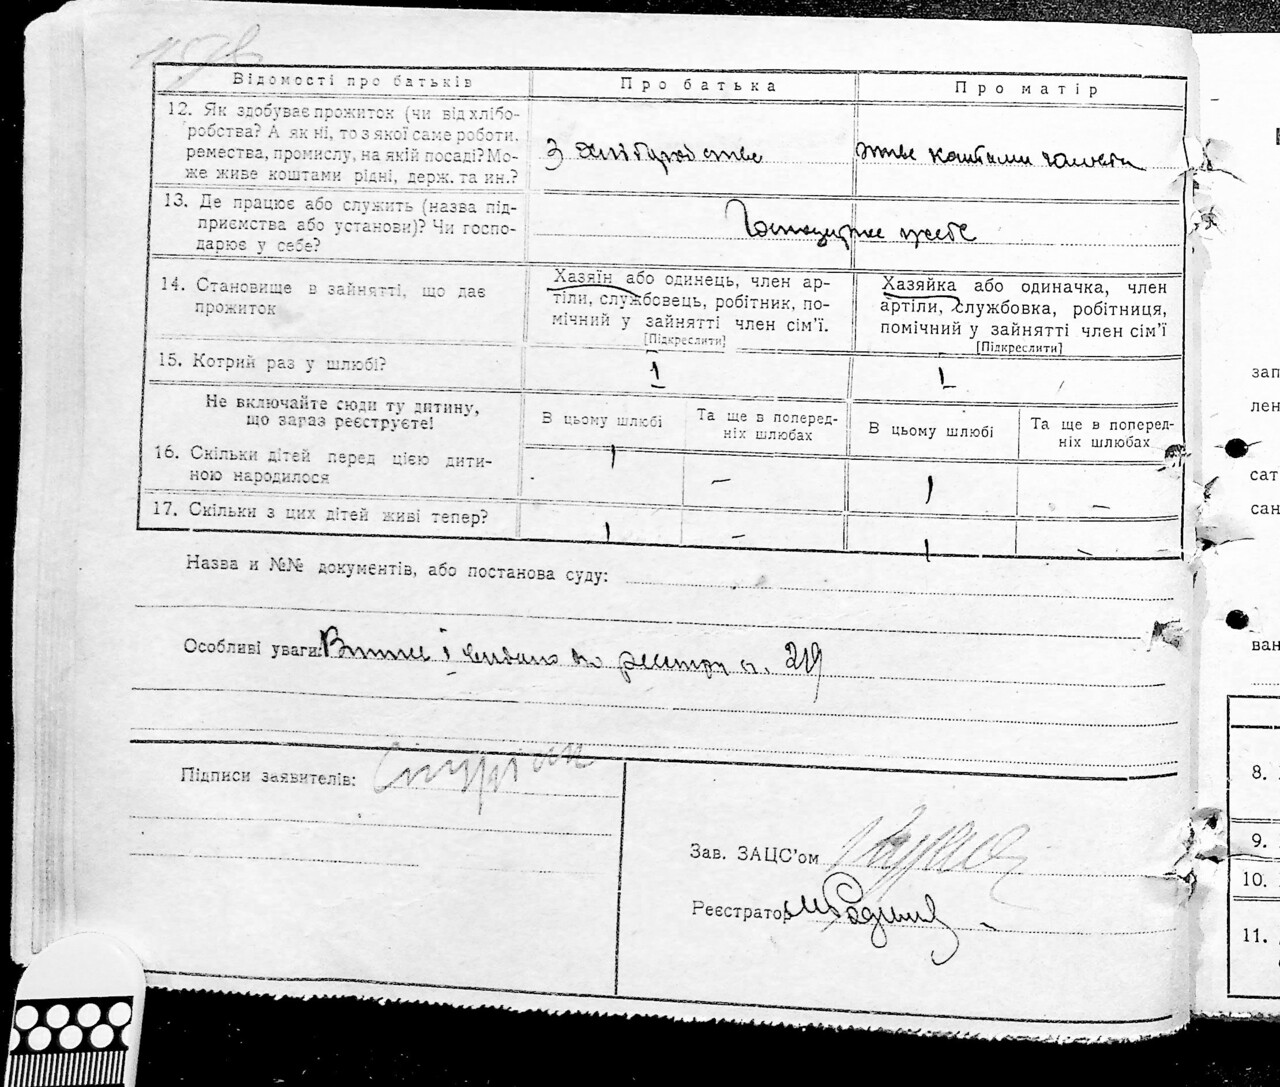 Відомості про батьків
Про батька
Про матір
12. Як здобуває прожиток (чи від хлібо-
робства? А як ні, то з якої саме роботи,
ремества, промислу, на якій посаді? Мо-
же живе коштами рідні, держ. та ин.?
З хліборобства
живе коштами чоловіка
13. Де працює або служить (назва під-
приємства або установи)? Чи госпо-
дарює у себе?
14. Становище в зайнятті, що дає
прожиток
Хазяїн або одинець, член ар-
тіли, службовець, робітник, по-
мічний у зайнятті член сім'ї.
[Підкреслити]
Хазяйка або одиначка, член
артіли, службовка, робітниця,
помічний у зайнятті член сім'ї
[Підкреслити]
15. Котрий раз у шлюбі?
1
1
Не включайте сюди ту дитину,
що зараз реєструєте!
В цьому шлюбі
Та ще в поперед-
ніх шлюбах
В цьому шлюбі
Та ще в поперед-
ніх шлюбах
16. Скільки дітей перед цією дити-
ною народилося
1
-
1
-
17. Скільки з цих дітей живі тепер?
1
-
1
-
Назва и №№ документів, або постанова суду:
Особливі уваги: і видано по реєстру 219
Підписи заявителів:
Зав. ЗАЦС'ом
Реєстратор
зап
лен
сат
сан
ван
8.
9.
10.
11.